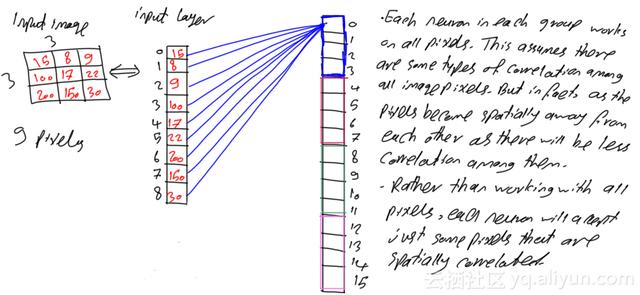 Input image
3
3
15 8 9
100 17 22
200 150 30
9 pixels
input layer
0 15
1 8
2 9
3 100
4 17
5 22
6 200
7 150
8 30
0
1
2
3
4
5
6
7
8
9
10
11
12
13
14
15
. Each neuron in each group works
on all pixels. This assumes there
are some types of correlation among
all image pixels. But in facts as the
pixels become spatially away from
each other as there will be less
correlation among them.
. Rather than working with all
pixels, each neuron will accept
just some pixels that are
spatially correlated.
云栖社区 yq.aliyun.com